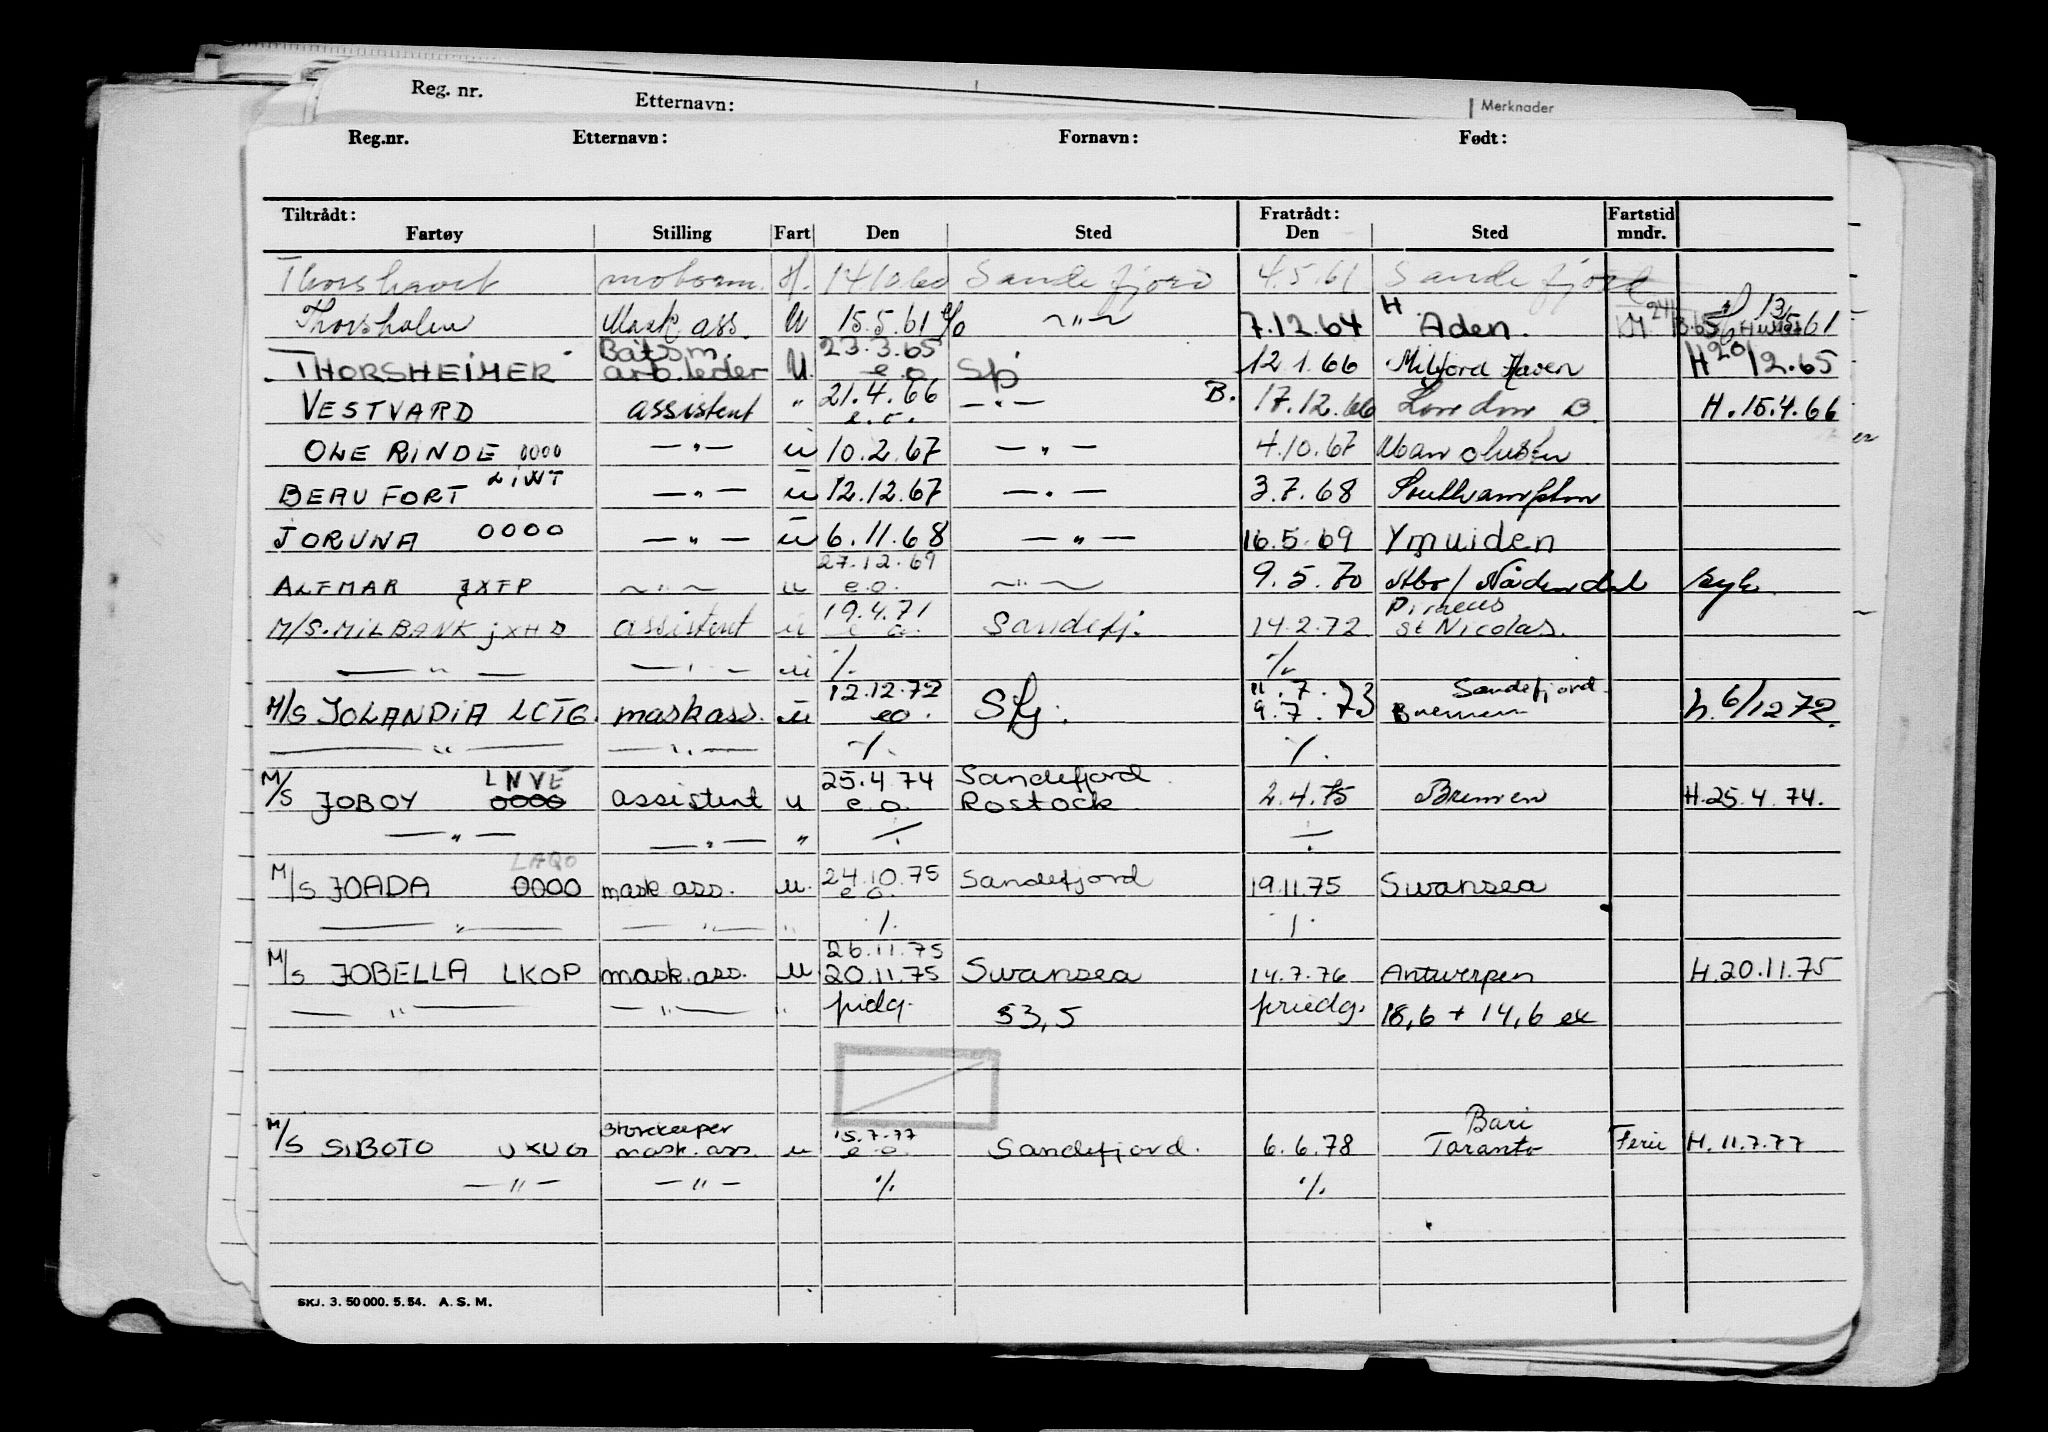 Reg. nr. Etternavn: Merknader
Reg.nr. Etternavn: Fornavn: Født:
Tiltrådt: Fratrådt: Fartstid
Fartøy Stilling Fart Den Sted Den Sted mndr.
Thorshavet motorm. H. 14/10.60 Sandefjord 4.5.61 Sandefjord
Thorsholm Mask ass. U 15.5.61 e/o — " — 7.12.64 H Aden.
THORSHEIMER Båtsm. arb.leder U. 23.3.65 e.o Sfj 12.1.66 Milford Haven H 20/12.65
VESTVARD assistent " 21.4.66 e.o. — " — B. 17.12.66 London B H. 15.4.66
OLE RINDE 0000 — " — u 10.2.67 — " — 4.10.67
BEAUFORT LIWT — " — u 12.12.67 — " — 3.7.68 Southampton
JORUNA 0000 — " — u 6.11.68 — " — 16.5.69 Ymuiden
ALFMAR JXFP — " — u 27.12.69 e.o. — " — 9.5.70 Åbo/Nådendal syk.
M/S. MILBANK jXHD assistent u 19.4.71 e o. Sandefj. 14.2.72 Pireus St Nicolas.
— " — — " — u ·/. ·/.
M/S JOLANDIA LCTG. maskass. u 12.12.72 eo. Sfj. 11.7. 9.7.73 Sandefjord. Bremen h. 6/12 72.
— " — — " — ·/. ·/.
M/S JOBOY LNVE 0000 assistent u 25.4.74 e.o. Sandefjord Rostock 2.4.75 Bremen H.25.4.74.
— " — — " — " ·/. ·/.
M/S JOADA LAQO 0000 mask ass. u. 24.10.75 e o. Sandefjord 19.11.75 Swansea
— " — — " — " ·/. ·/.
M/S JOBELLA LKOP mask.ass. u 26.11.75 20.11.75 Swansea 14.7.76 Antwerpen H.20.11.75
— " — — " — " pidg. 53,5 priedg. 18,6 + 14,6 ex
M/S SIBOTO UXUG Storekeeper mask.ass. u 15.7.77 e.o. Sandefjord. 6.6.78 Bari Taranto Ferie H.11.7.77
— " — — " — ·/. ·/.
SKJ. 3. 50 000. 5. 54. A. S. M.